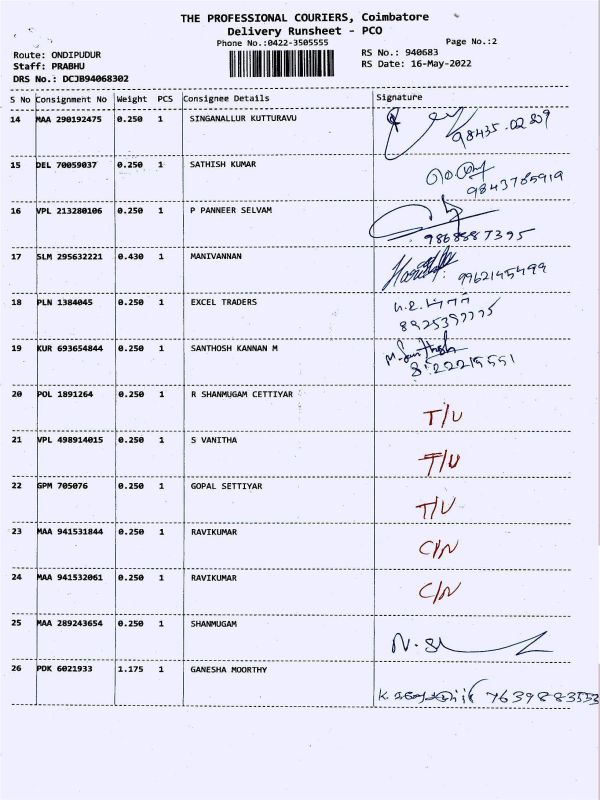 THE PROFESSIONAL COURIERS, Coimbatore
Delivery Runsheet - PCO
Phone No.:0422-3505555 Page No.:2
Route: ONDIPUDUR RS No.: 940683
Staff: PRABHU RS Date: 16-May-2022
DRS No.: DCJB94068302
S No Consignment No Weight PCS Consignee Details Signature
14 MAA 290192475 0.250 1 SINGANALLUR KUTTURAVU
15 DEL 70059037 0.250 1 SATHISH KUMAR
9843785919
16 VPL 213280106 0.250 1 P PANNEER SELVAM
9868587395
17 SLM 295632221 0.430 1 MANIVANNAN
9962145499
18 PLN 1384045 0.250 1 EXCEL TRADERS
19 KUR 693654844 0.250 1 SANTHOSH KANNAN M
M. Santhosh
20 POL 1891264 0.250 1 R SHANMUGAM CETTIYAR
T/U
21 VPL 498914015 0.250 1 S VANITHA
T/U
22 GPM 705076 0.250 1 GOPAL SETTIYAR
T/U
23 MAA 941531844 0.250 1 RAVIKUMAR
C/N
24 MAA 941532061 0.250 1 RAVIKUMAR
C/N
25 MAA 289243654 0.250 1 SHANMUGAM
26 PDK 6021933 1.175 1 GANESHA MOORTHY
7639883553